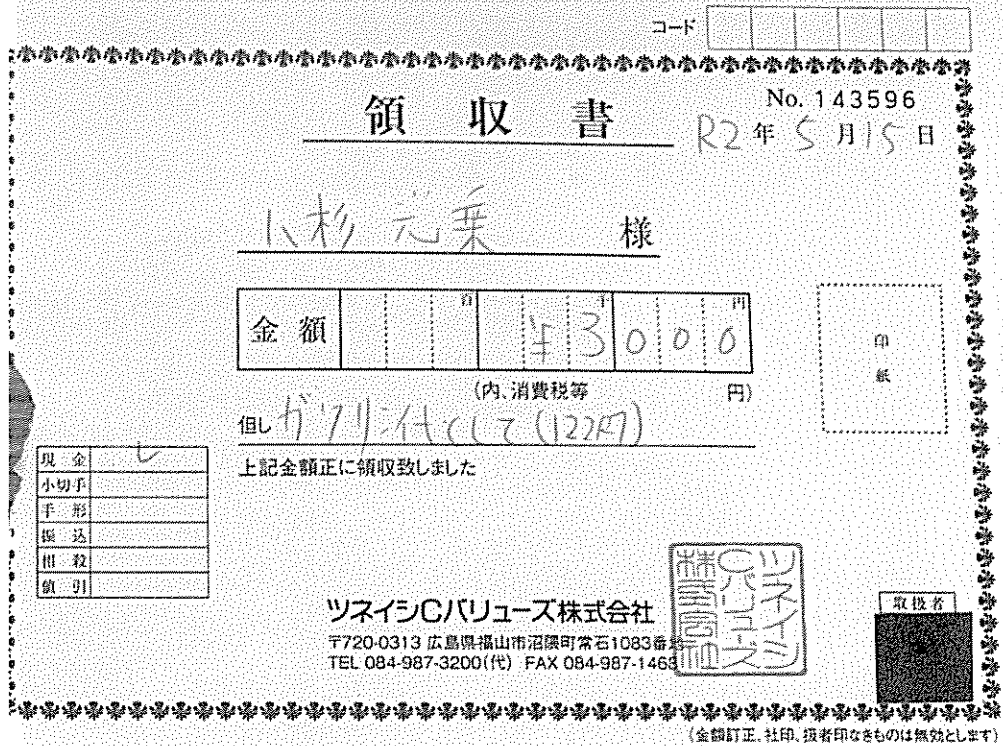 コード
領収書
No. 143596
R2年 5月15日
小杉 元乗 様
金額 百 千 円
¥3000
(内、消費税等 円)
但し ガソリン代として(122円)
上記金額正に領収致しました
現金 レ
小切手
手形
振込
相殺
値引
印紙
ツネイシCバリューズ株式会社
〒720-0313 広島県福山市沼隈町常石1083番地
TEL 084-987-3200(代) FAX 084-987-1468
ツネイシCバリューズ株式会社
取扱者
(金額訂正、社印、扱者印なきものは無効とします)